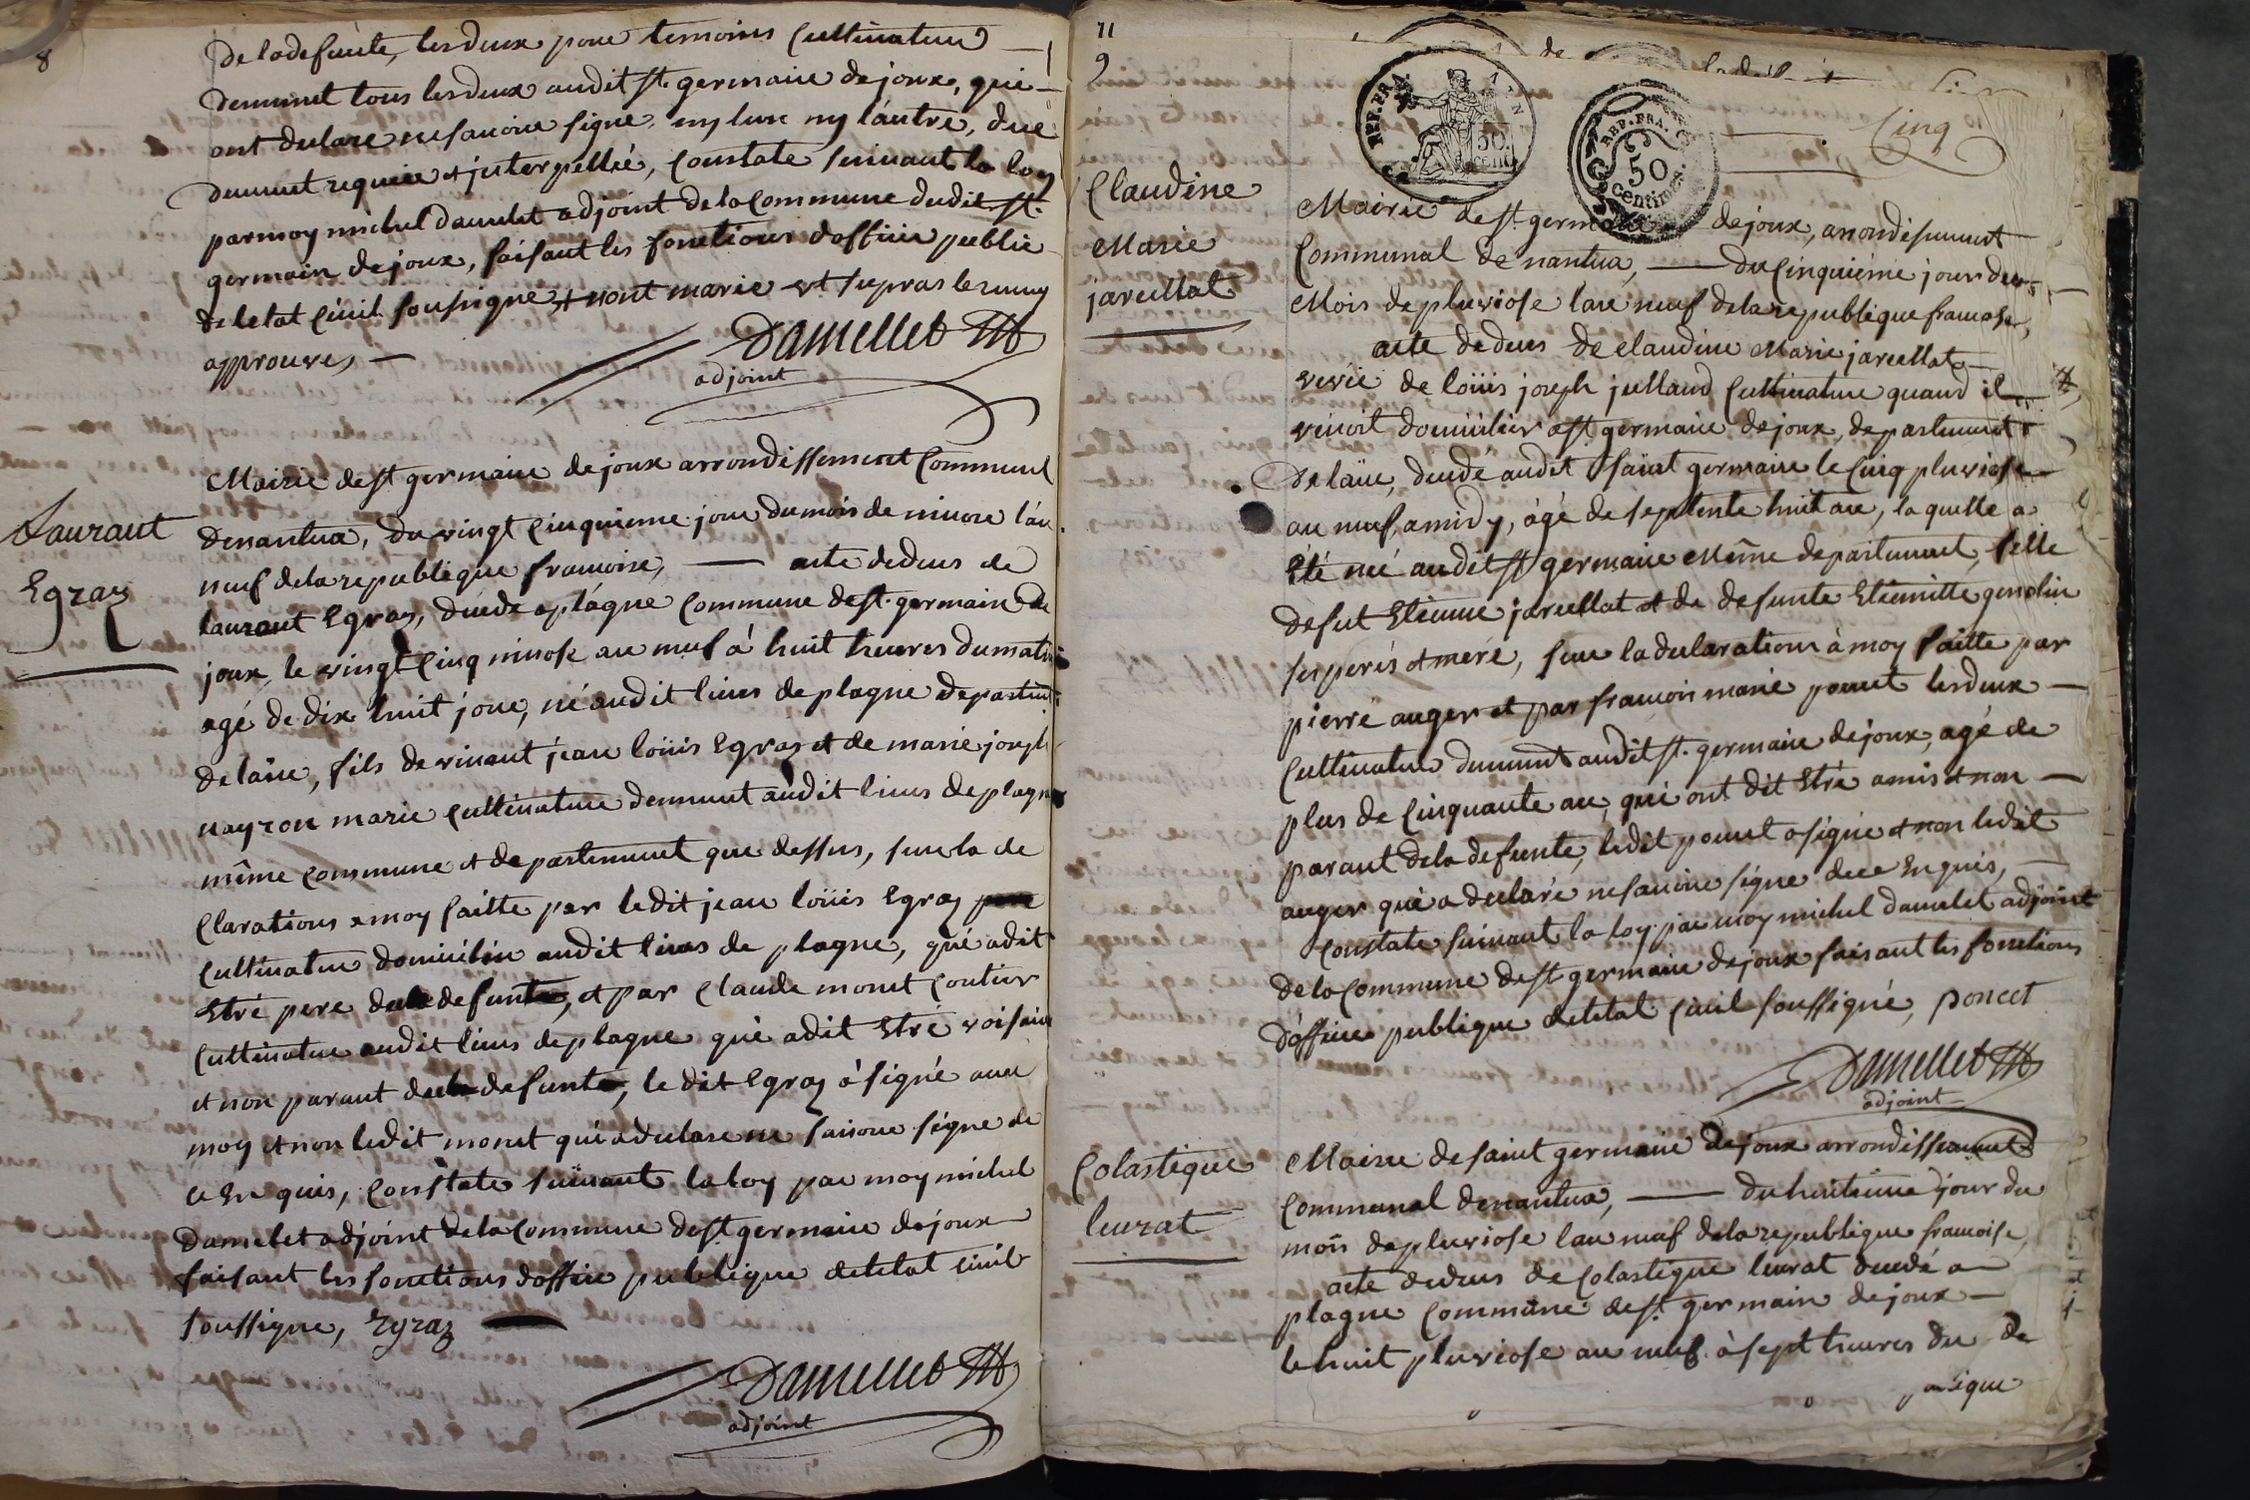 8
de la defunte, les deux pour temoins cultivateur
demeurent tous les deux audit st. germain de joux, qui
ont declare ne savoire signe, ny lun ny lautre, due
dument requie et jnterpellié, constate suivant la loy
par moy michel damelet adjoint de la commune dudit st.
germain de joux, faisant les fonctions doffisie public
de letat civil soussigne, et mont marie et
approuves
Damellet
adjoint
Lauraut
Egraz
Mairie de st germain de joux arrondissement communal
de nantua, du vingt cinquieme jour du mois de nivose l'an
neuf de la republique francoise, acte de deces de
lauraut Egraz, decede a plagne commune de st. germain de
joux, le vingt cinq nivose an neuf à huit heures du matin
agé de dix huit jour, né audit lieus de plagne departement
de laine, fils de vivant jean loüis Egraz et de marie joseph
nayron marie cultivateur demeurent audit lieus de plagne
même commune et departement que dessus, sur la de
clarations a moy faitte par ledit jean loüis Egraz
cultivateur domicilie audit lieus de plagne, qui a dit
Etre pere de defunt, et par claude monet coutier
cultivateur audit lieus de plagne qui a dit Etre voisain
et non parant de defunt, le dit Egraz a signé avec
moy et non ledit monet qui a declare ne savoire signe de
ce En quis, constate suivant la loy par moy michel
damelet adjoint de la commune de st germain de joux
faisant les fonctions doffisie publique de letat civil
soussigne, Egraz
Damellet
adjoint
11
9
REP. FRA.
50 cent.
REP. FRA.
50
centimes.
Cinq
Claudine
Marie
jarcellat
Mairie de st. germain de joux, arrondisement
Communal de nantua, du cinquiéme jour du
Mois de pluviose lan neuf de la republique francoise,
acte de deces de claudine Marie jarcellat
vevie de loüis joseph julland cultivateur quand il
vivoit domicilier a st germain de joux, departement
de laine, decedé audit saint germain le cinq pluviose
an neuf, a midy, agé de septente huit an, la quelle a
Eté neé audit st germain Même departement, fille
de fut Etienne jarcellat et de defunte Etiennitte gendin
ses perés et meré, sur la declarations à moy faitte par
pierré auger et par francois marie poncet les deux
cultivateur demeurent audit st. germain de joux, agé de
plus de cinquante an, qui ont dit Etre amis et non
parant de la defunte, ledit poncet a signé et non ledit
auger qui a declaré ne savoire signe de ce Enquis,
constate suivant la loy par moy michel damelet adjoint
de la commune de st germain de joux faisant les fonctions
d'offisie publique de letat civil soussigné, poncet
Damellet
adjoint
Colastique
leurat
Mairie de saint germain de joux arrondissement
communal de nantua, du huitieme jour du
mois de pluviose lan neuf de la republique francoise,
acte de deces de Colastique leurat decedé a
plagne commune de st. germain de joux
le huit pluviose an neuf à sept heures du de